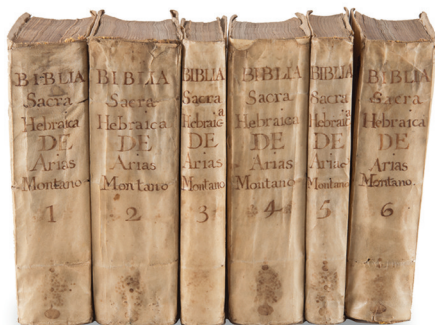 BIBLIA
Sacra
Hebraica
DE
Arias
Montano
1
BIBLIA
Sacra
Hebraica
DE
Arias
Montano
2
BIBLIA
Sacra
Hebraica
DE
Arias
Montano.
3
BIBLIA
Sacra
Hebraica
DE
Arias
Montano
4
BIBLIA
Sacra
Hebraica
DE
Arias
Montano.
5
BIBLIA
Sacra
Hebraica
DE
Arias
Montano.
6